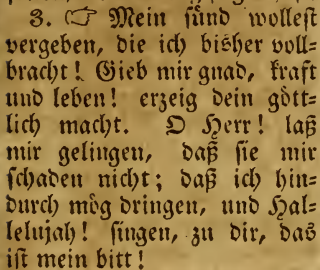 3. ☞ Mein sünd wollest
vergeben, die ich bisher voll-
bracht! Gieb mir gnad, kraft
und leben! erzeig dein gött-
lich macht. O Herr! laß
mir gelingen, daß sie mir
schaden nicht; daß ich hin-
durch mög dringen, und Hal-
lelujah! singen, zu dir, das
ist mein bitt!